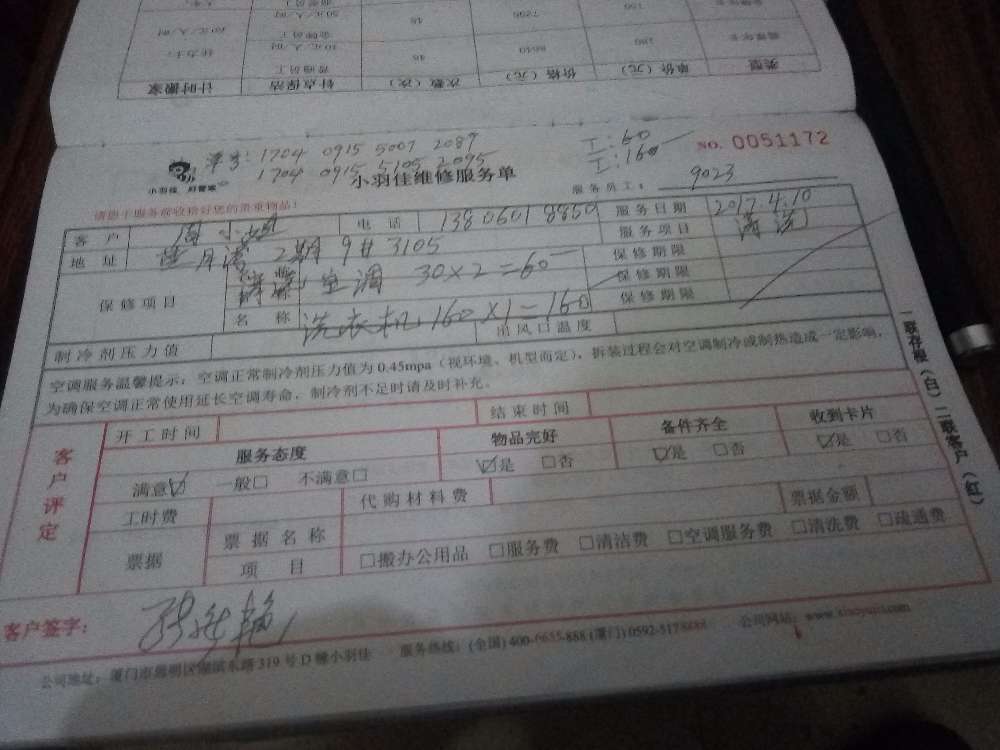 类型 单价（元） 价格（元） 次数（次） 钟点保洁 计时搬家
180 8640 48 普通员工 30元/人/时
150 7200 48 金牌员工 50元/人/时
NO. 0051172
单号：1704 0915 5007 2087
1704 0915 5105 2095
工：60
工：160
小羽佳 好管家
小羽佳维修服务单
服务员工： 9023
请您于服务前收拾好您的贵重物品！
客户 电话 13806018850 服务日期 2017.4.10
地址 2期 9# 3105 服务项目 清洗
保修项目 空调 30×2=60 保修期限
保修期限
名称 洗衣机 160×1=160 保修期限
制冷剂压力值 出风口温度
空调服务温馨提示：空调正常制冷剂压力值为0.45mpa（视环境、机型而定），拆装过程会对空调制冷或制热造成一定影响，
为确保空调正常使用延长空调寿命，制冷剂不足时请及时补充。
客户评定
开工时间 结束时间
服务态度 物品完好 备件齐全 收到卡片
满意☑ 一般□ 不满意□ ☑是 □否 ☑是 □否 ☑是 □否
工时费 代购材料费 票据金额
票据 票据名称
项目 □搬办公用品 □服务费 □清洁费 □空调服务费 □清洗费 □疏通费
客户签字：
公司地址：厦门市思明区湖滨东路319号D幢小羽佳 服务热线：(全国)400-6655-888 (厦门)0592-5178888 公司网站：www.xiaoyujia.com
一联存根（白）二联客户（红）